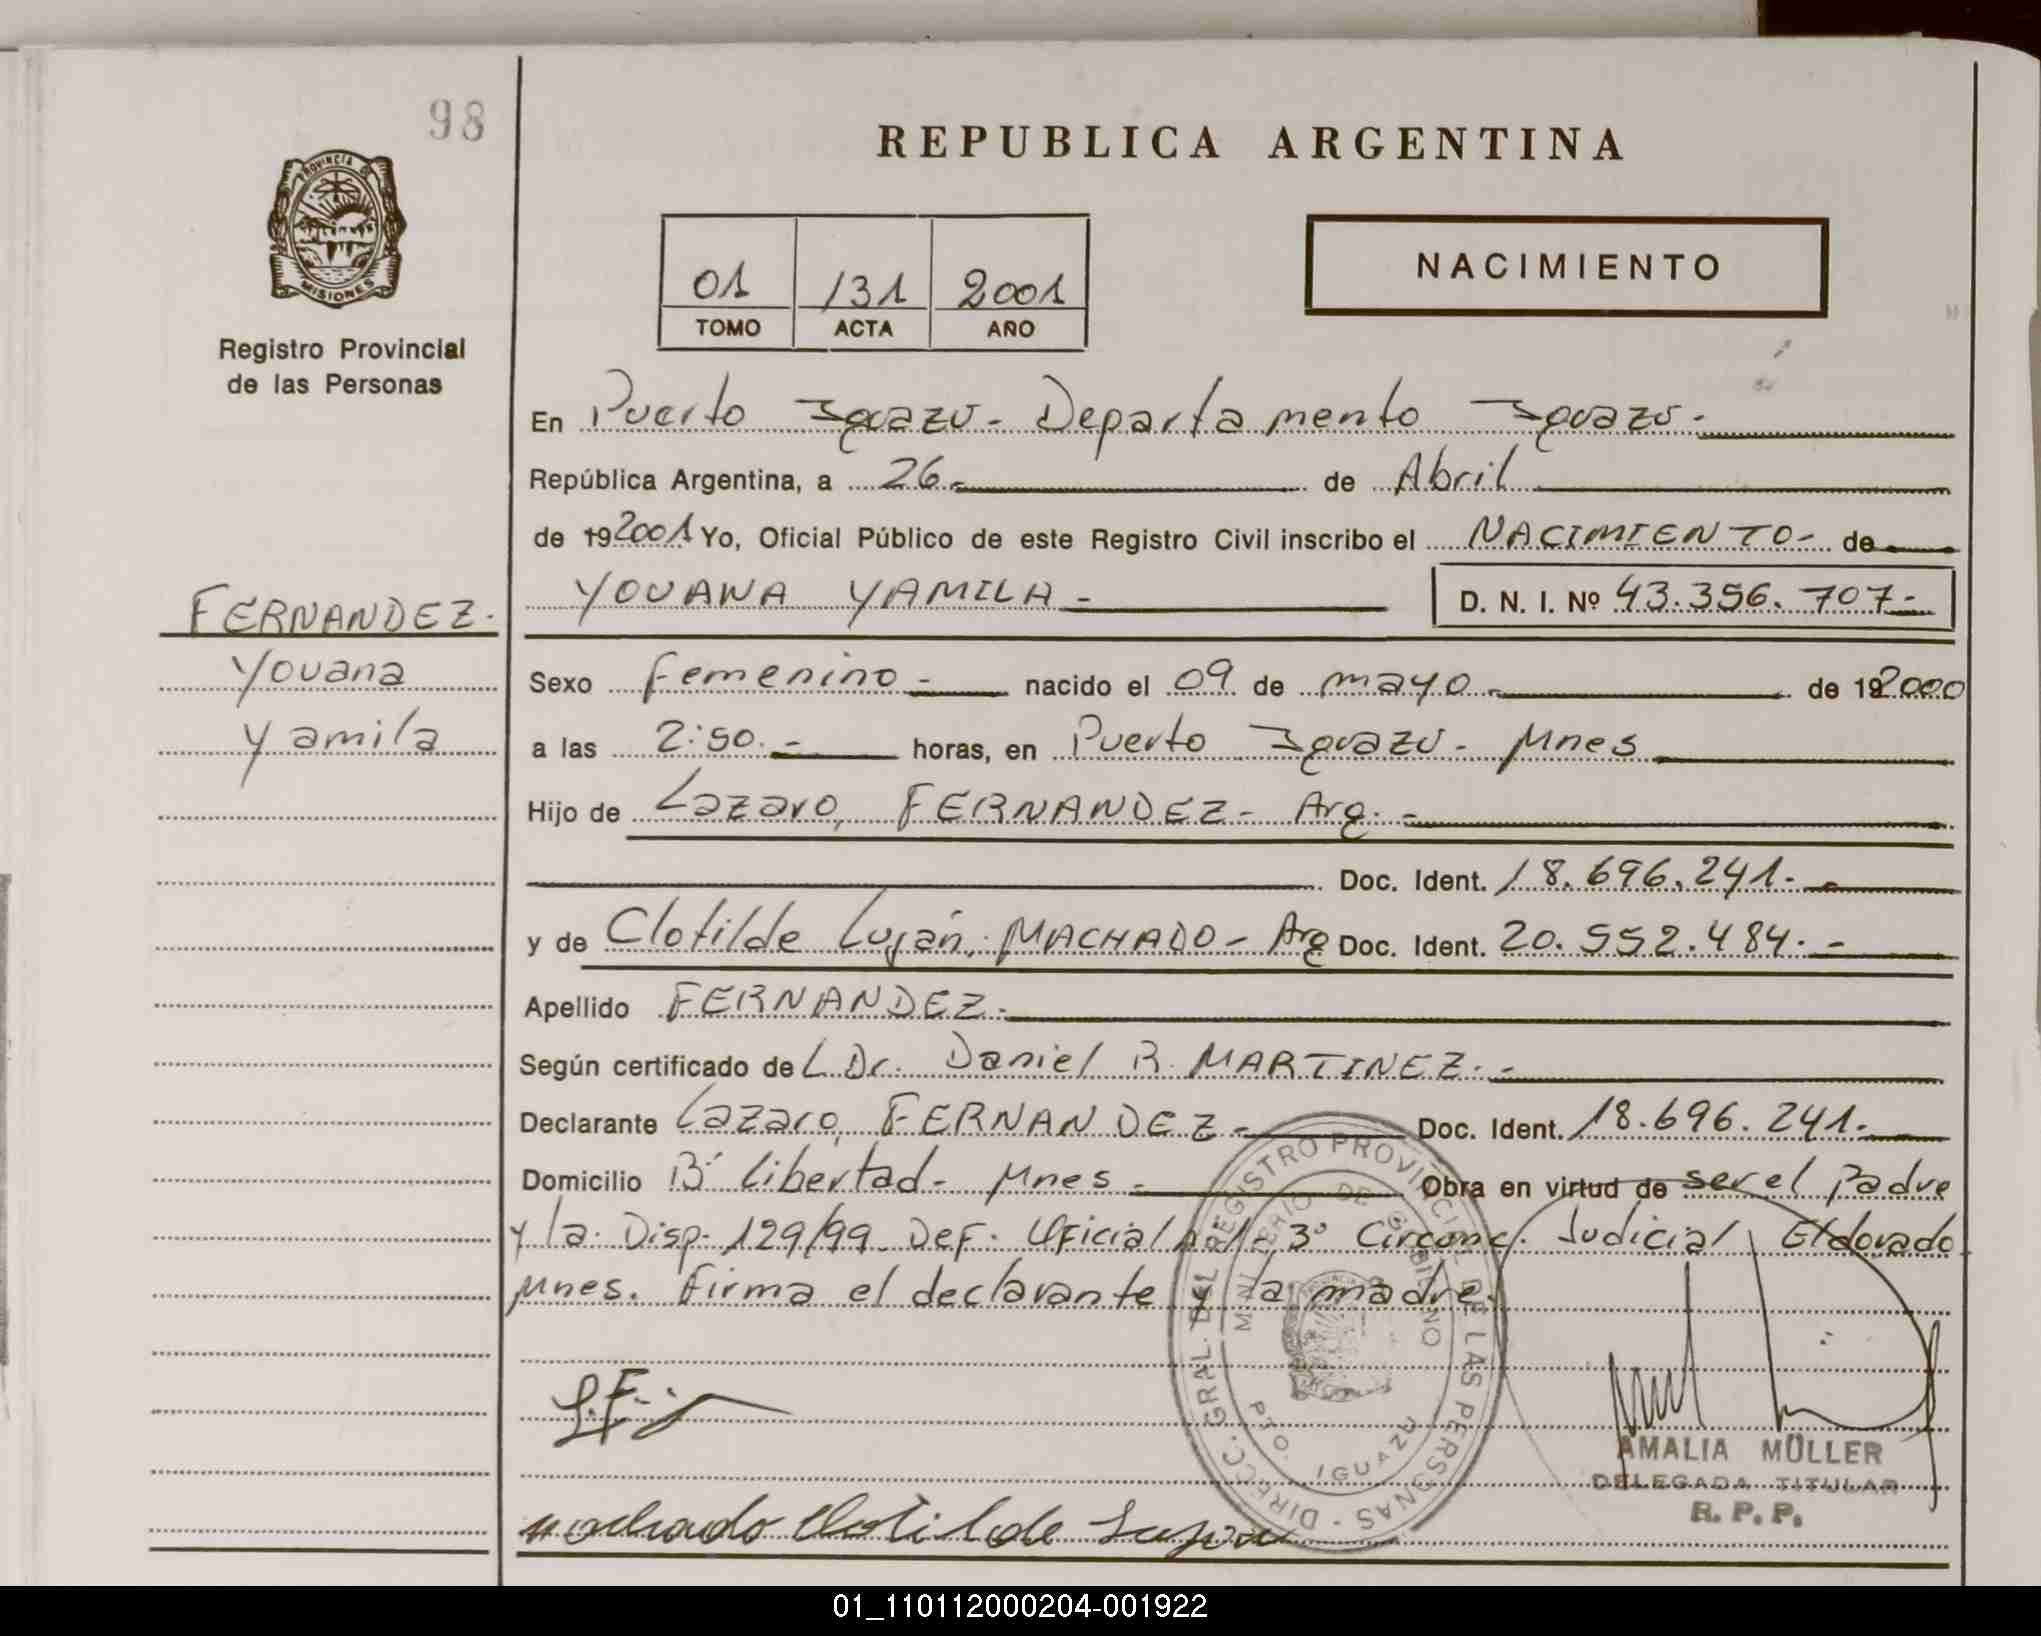 98
PROVINCIA DE
MISIONES
Registro Provincial
de las Personas
FERNANDEZ.
Yovana
Yamila
REPUBLICA ARGENTINA
01 131 2001
TOMO ACTA AÑO
NACIMIENTO
En Puerto Iguazú - Departamento Iguazú.
República Argentina, a 26.- de Abril
de 19 2001 Yo, Oficial Público de este Registro Civil inscribo el NACIMIENTO- de
YOVANA YAMILA - D. N. I. Nº 43.356.707-
Sexo femenino - nacido el 09 de mayo. de 19 2000
a las 2:50.- horas, en Puerto Iguazú - Mnes
Hijo de Lazaro, FERNANDEZ - Arg. -
Doc. Ident. 18.696.241.-
y de Clotilde Luján, MACHADO - Arg Doc. Ident. 20.552.484. -
Apellido FERNANDEZ.
Según certificado de L Dr. Daniel R. MARTINEZ. -
Declarante Lazaro, FERNANDEZ - Doc. Ident. 18.696.241.
Domicilio Bº Libertad - Mnes - Obra en virtud de ser el Padre
y la Disp. 129/99 Def. Oficial 3º Circunc. Judicial Eldorado
Mnes. firma el declarante y la madre.
DIRECC. GRAL. DEL REGISTRO PROVINCIAL DE LAS PERSONAS -
MINISTERIO DE GOBIERNO
PTO. IGUAZU
machado Clotilde Lujan
AMALIA MÜLLER
DELEGADA TITULAR
R. P. P.
01_110112000204-001922